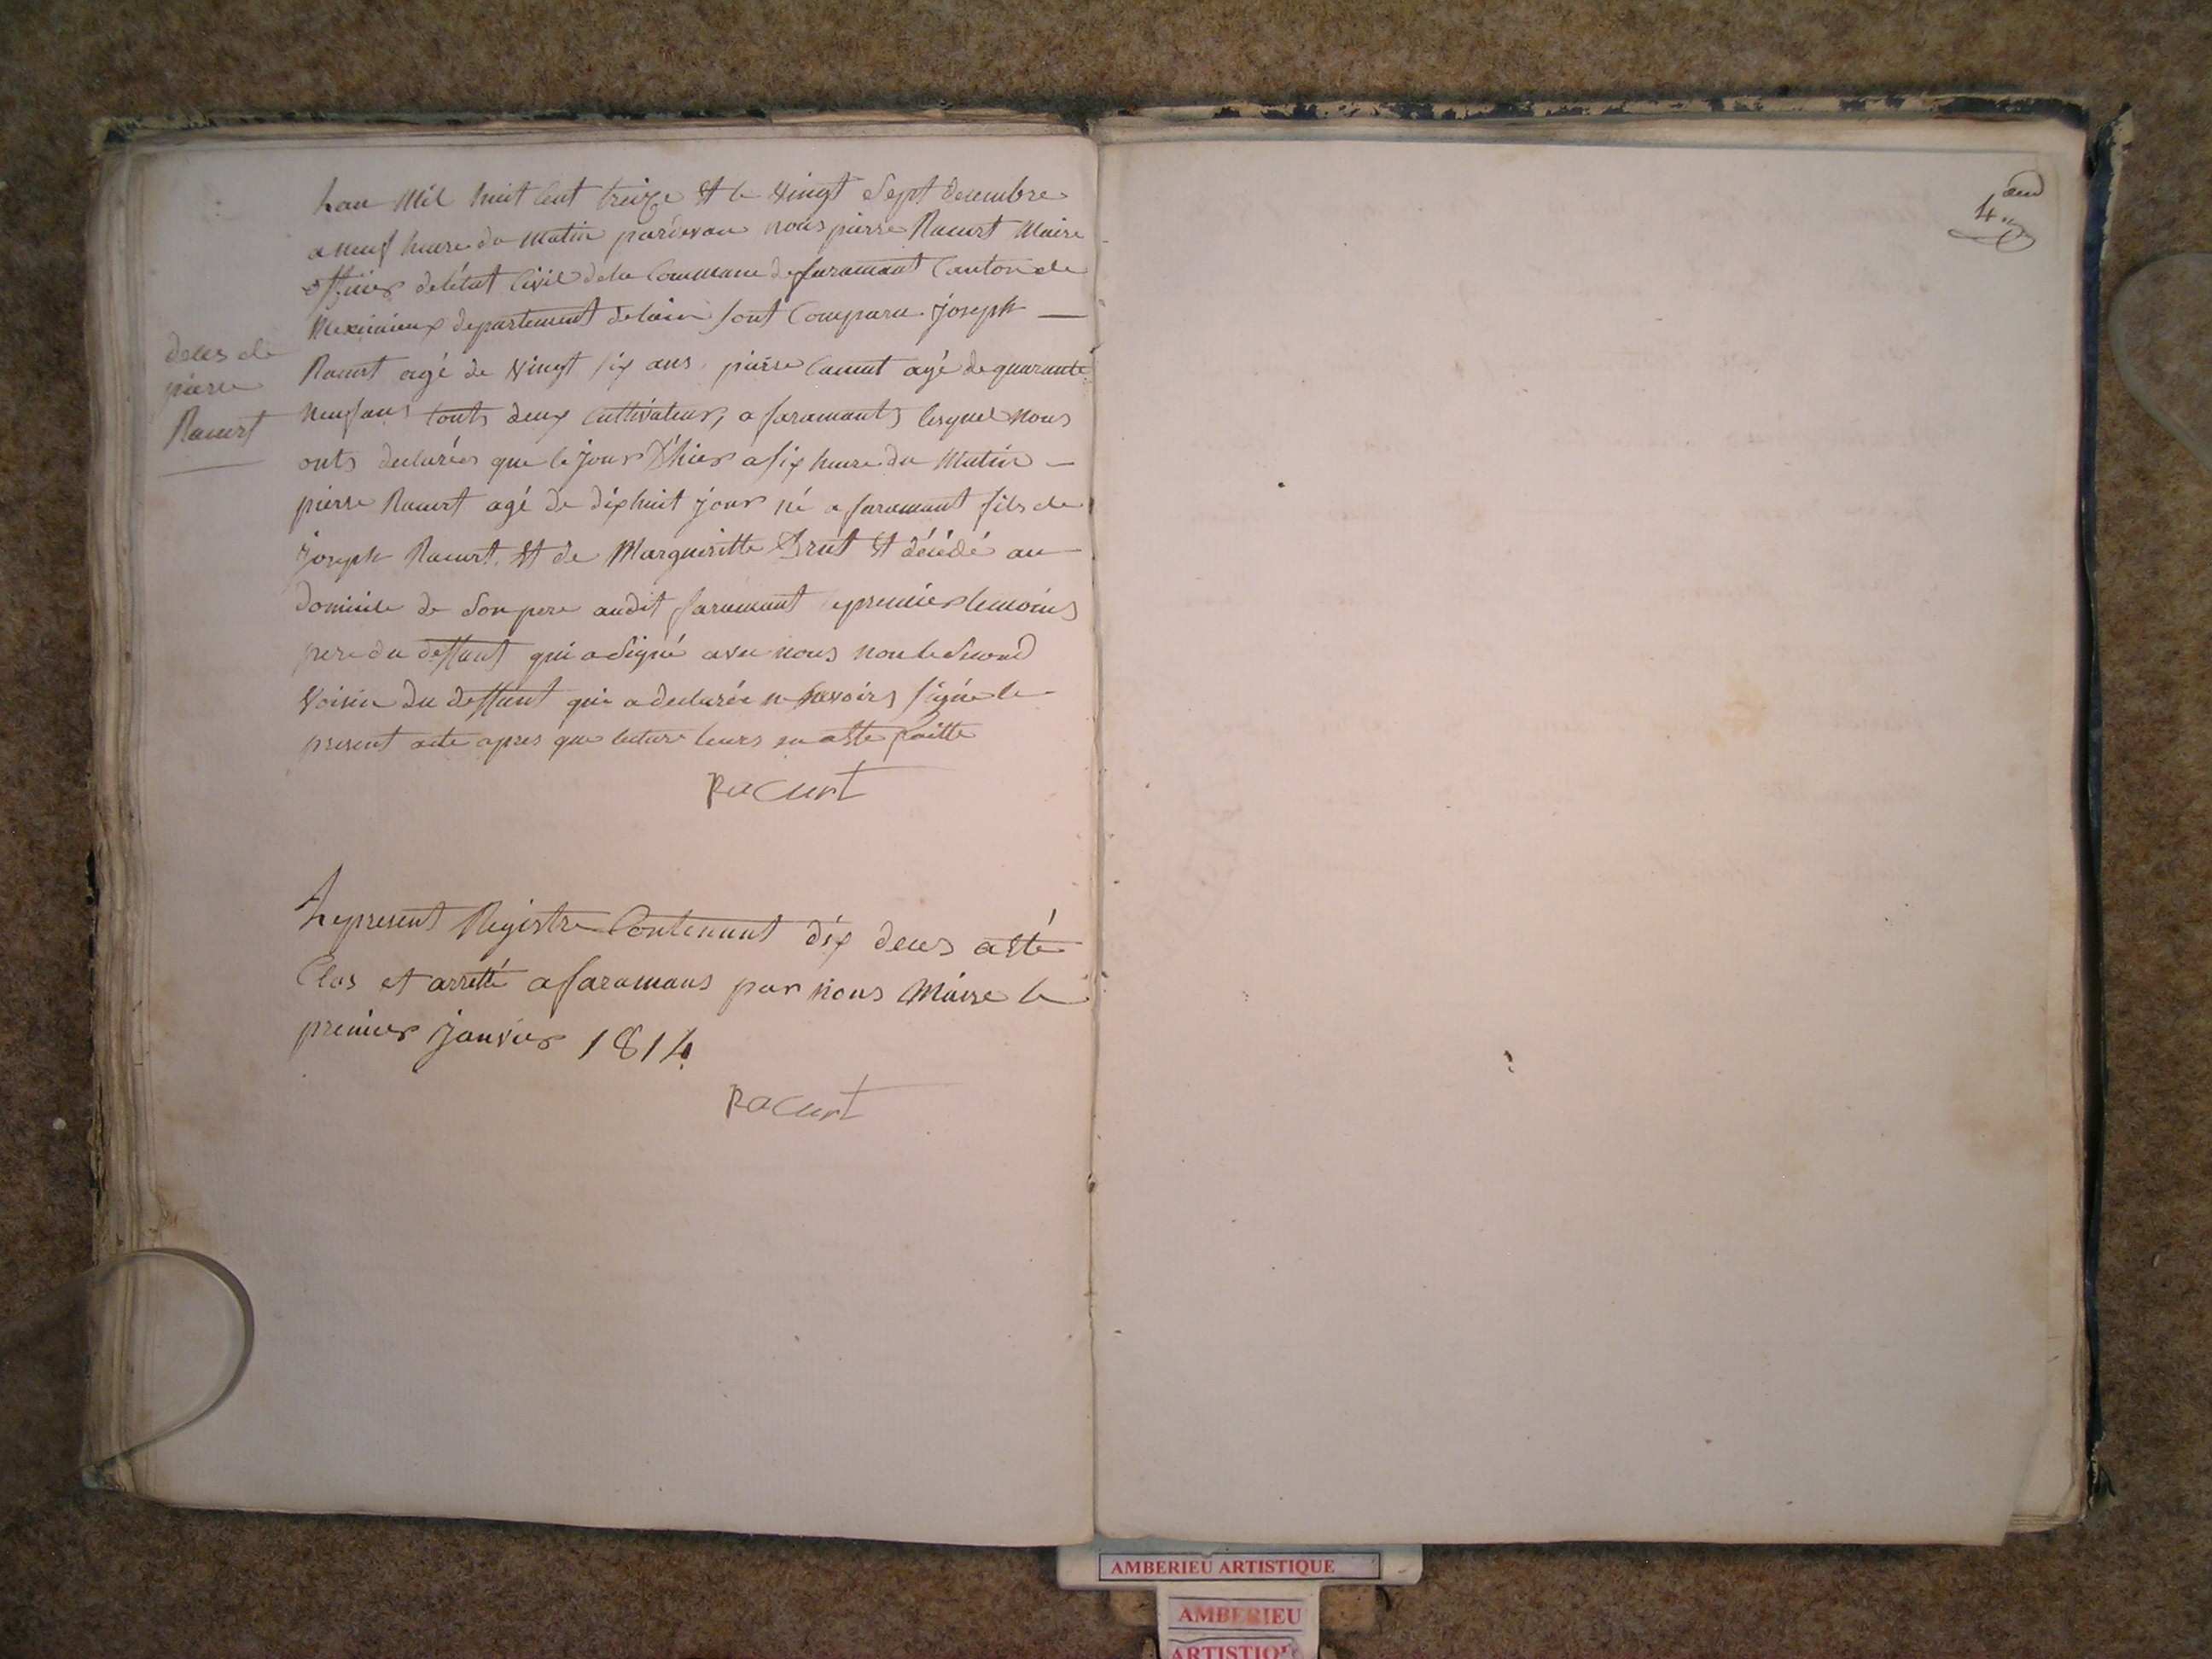 Lan Mil huit Cent treize Et le Vingt Sept decembre
a neuf heure du Matin pardevan nous pierre Racurt Maire
officier deletat Civil dela Commune defaramant Canton de
Meximieux departement delain sont Comparu Joseph
Racurt agé de Vingt six ans pierre Camut agé de quarante
neuf ans touts deux Cultivateur, a faramants lesquel nous
onts declarées que le jour D'hier a six heure du Matin
pierre Racurt agé de dix huit jour né a faramant fils de
Joseph Racurt Et de Margueritte Brut Et décédé au
Domicile de Son pere audit faramant le premier temoins
pere du deffunt qui a Signé avec nous non le Second
Voisin du deffunt qui a declarée ne savoirs signé le
present acte apres que lecture leurs en a Eté faitte
Racurt
deces de
pierre
Racurt
Le present Registre Contenant dix deces a Eté
Clos et arretté a faramans par nous Maire le
premier Janvier 1814
Racurt
4
AMBERIEU ARTISTIQUE
AMBERIEU
ARTISTIQUE